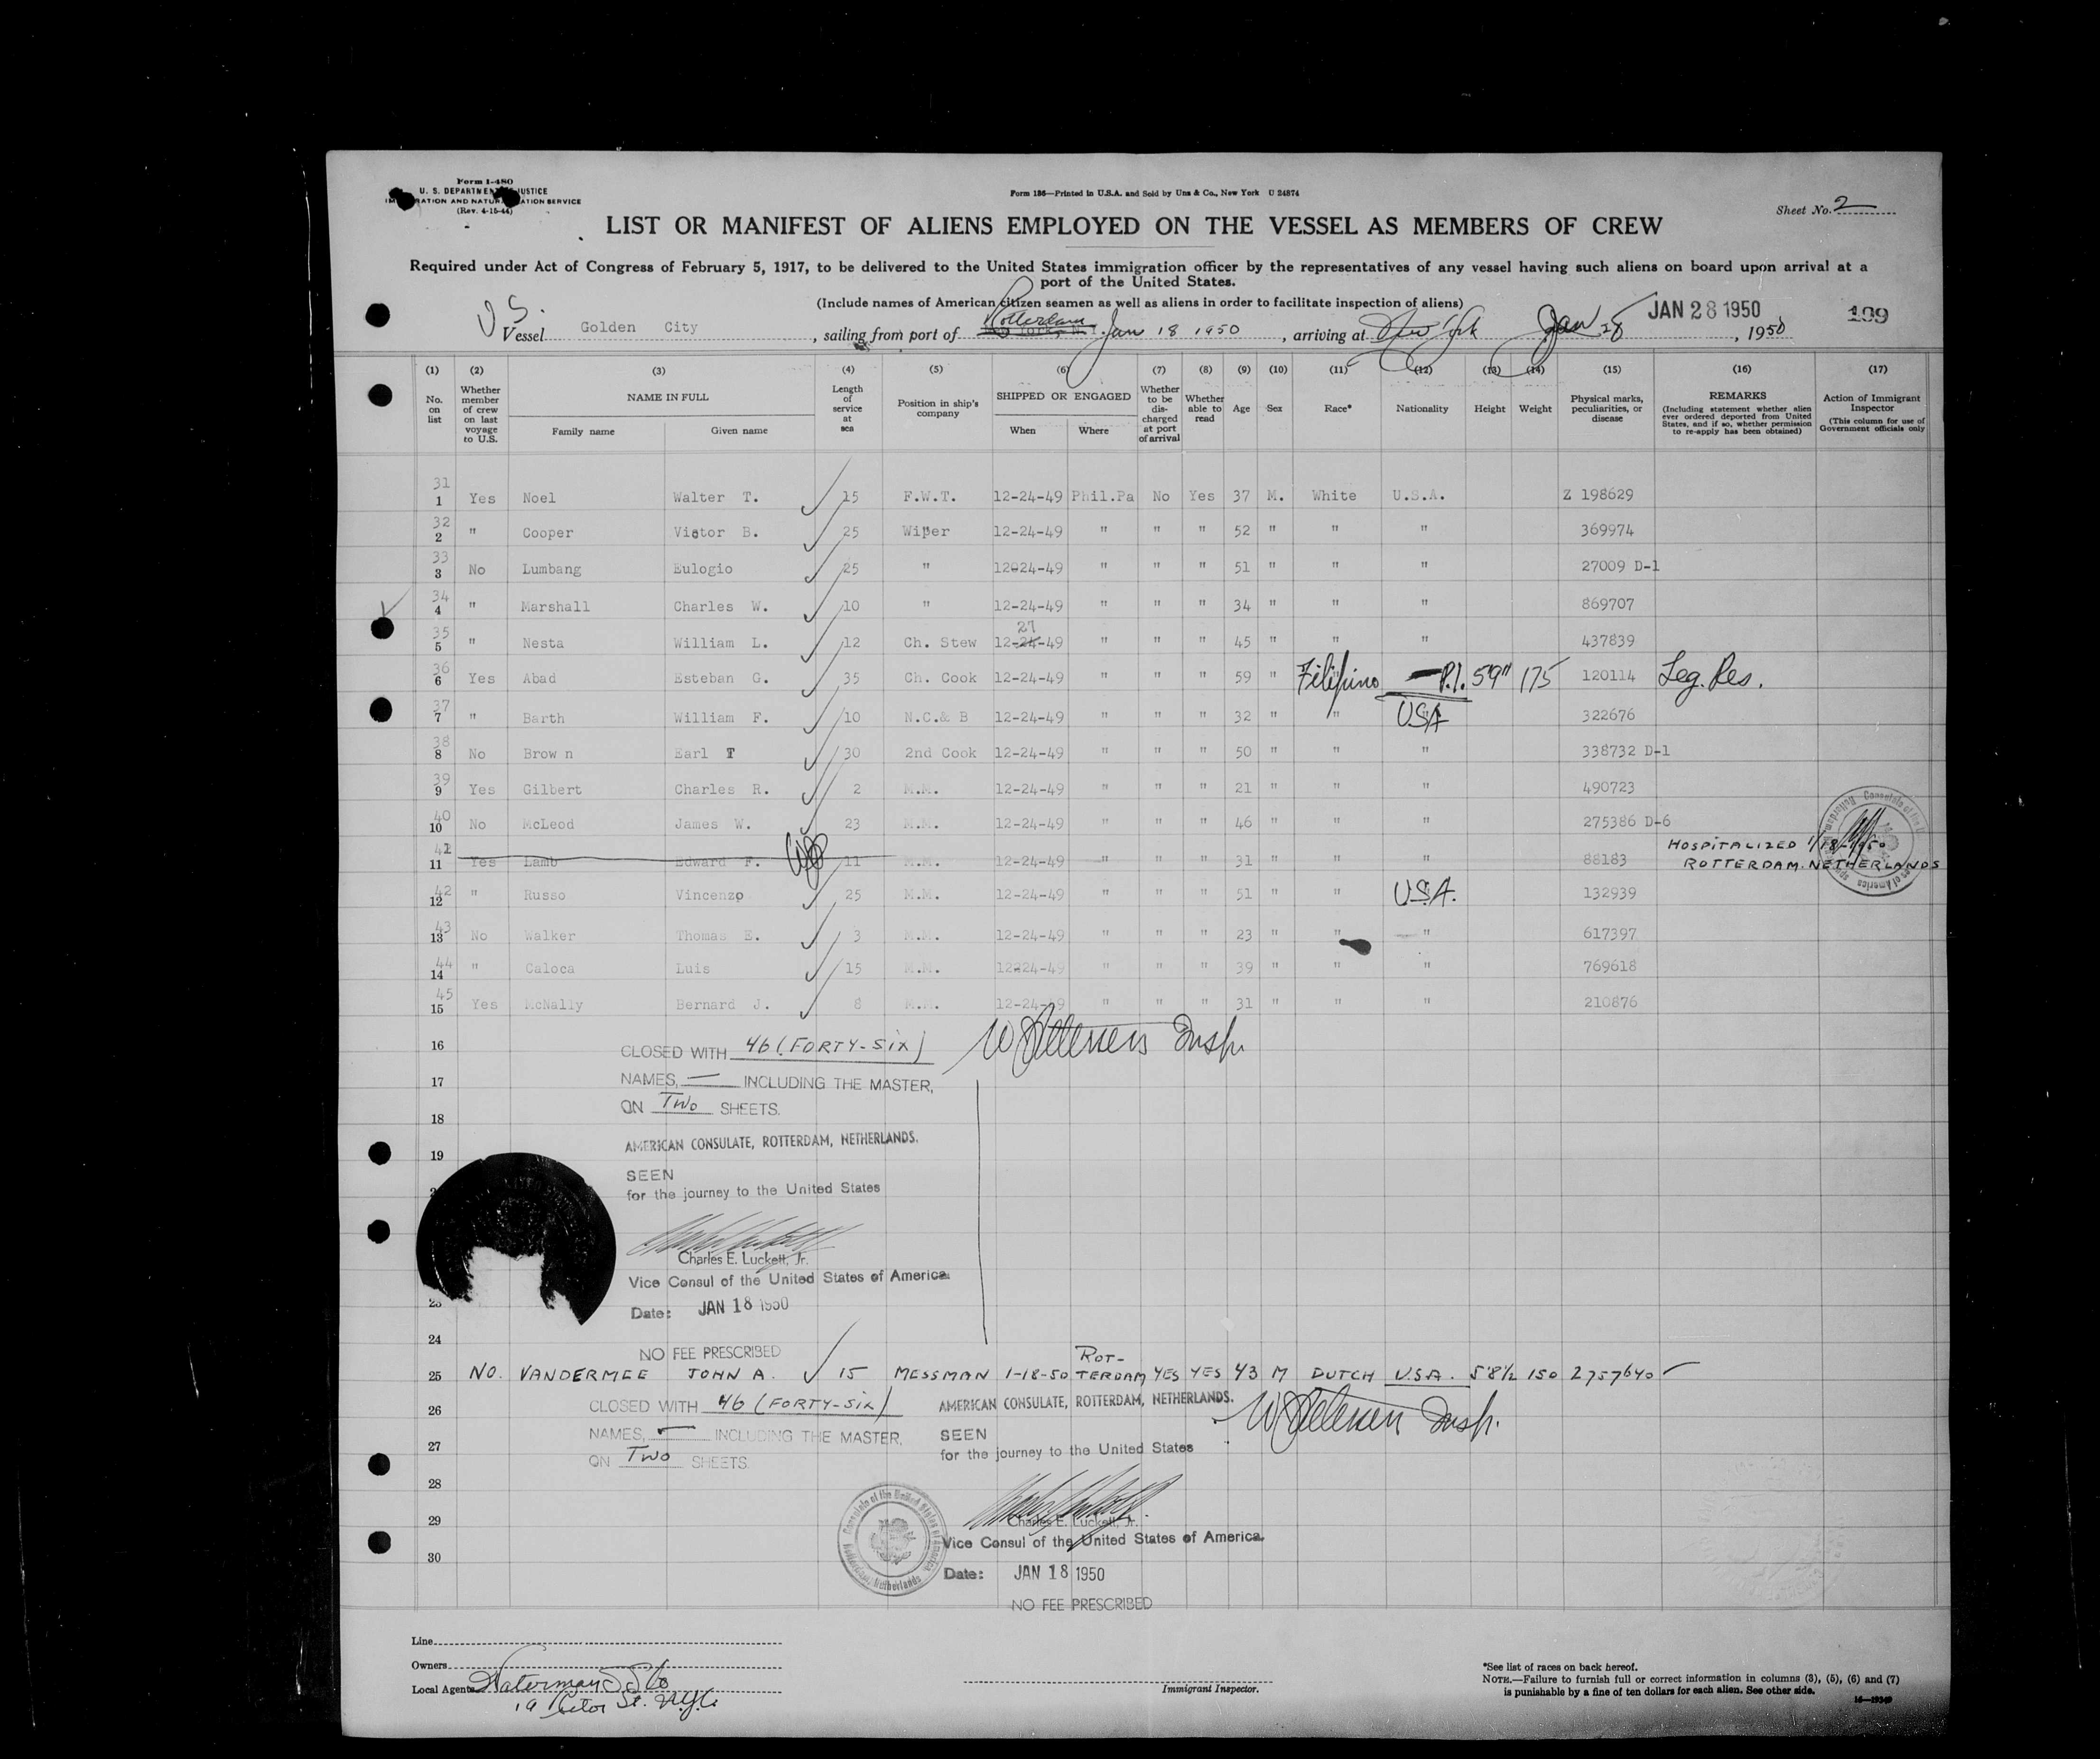 Form I-480
U. S. DEPARTMENT JUSTICE
IMMIGRATION AND NATURALIZATION SERVICE
(Rev. 4-15-44)
Form 136—Printed in U.S.A. and Sold by Unz & Co., New York U 24874
Sheet No. 2
LIST OR MANIFEST OF ALIENS EMPLOYED ON THE VESSEL AS MEMBERS OF CREW
Required under Act of Congress of February 5, 1917, to be delivered to the United States immigration officer by the representatives of any vessel having such aliens on board upon arrival at a
port of the United States.
(Include names of American citizen seamen as well as aliens in order to facilitate inspection of aliens)
JAN 28 1950
109
Vessel Golden City , sailing from port of Rotterdam Jan 18 1950 , arriving at New York Jan 28 , 1950
(1) (2) (3) (4) (5) (6) (7) (8) (9) (10) (11) (12) (13) (14) (15) (16) (17)
No. on list
Whether member of crew on last voyage to U.S.
NAME IN FULL
Family name Given name
Length of service at sea
Position in ship's company
SHIPPED OR ENGAGED
When Where
Whether to be discharged at port of arrival
Whether able to read
Age
Sex
Race*
Nationality
Height
Weight
Physical marks, peculiarities, or disease
REMARKS
(Including statement whether alien ever ordered deported from United States, and if so, whether permission to re-apply has been obtained)
Action of Immigrant Inspector
(This column for use of Government officials only
31 1 Yes Noel Walter T. 15 F.W.T. 12-24-49 Phil.Pa No Yes 37 M. White U.S.A. Z 198629
32 2 " Cooper Victor B. 25 Wiper 12-24-49 " " " 52 " " " 369974
33 3 No Lumbang Eulogio 25 " 12-24-49 " " " 51 " " " 27009 D-1
34 4 " Marshall Charles W. 10 " 12-24-49 " " " 34 " " " 869707
35 5 " Nesta William L. 12 Ch. Stew 12-24-49 27 " " " 45 " " " 437839
36 6 Yes Abad Esteban G. 35 Ch. Cook 12-24-49 " " " 59 " Filipino P.I. 5'9" 175 120114 Leg. Res.
37 7 " Barth William F. 10 N.C.& B 12-24-49 " " " 32 " " USA 322676
38 8 No Brow n Earl T 30 2nd Cook 12-24-49 " " " 50 " " " 338732 D-1
39 9 Yes Gilbert Charles R. 2 M.M. 12-24-49 " " " 21 " " " 490723
40 10 No McLeod James W. 23 M.M. 12-24-49 " " " 46 " " " 275386 D-6
41 11 Yes Lamb Edward F. 11 M.M. 12-24-49 " " " 31 " " " 88183 HOSPITALIZED 1/18-1950
ROTTERDAM. NETHERLANDS
42 12 " Russo Vincenzo 25 M.M. 12-24-49 " " " 51 " " U.S.A. 132939
43 13 No Walker Thomas E. 3 M.M. 12-24-49 " " " 23 " " " 617397
44 14 " Caloca Luis 15 M.M. 12-24-49 " " " 39 " " " 769618
45 15 Yes McNally Bernard J. 8 M.M. 12-24-49 " " " 31 " " " 210876
16 CLOSED WITH 46 (FORTY-SIX) W Petersen Insp.
17 NAMES, — INCLUDING THE MASTER,
18 ON TWO SHEETS.
AMERICAN CONSULATE, ROTTERDAM, NETHERLANDS.
19
SEEN
for the journey to the United States
Charles E. Luckett, Jr.
Vice Consul of the United States of America
23
Date: JAN 18 1950
24
NO FEE PRESCRIBED
25 NO. VANDERMEE JOHN A. 15 MESSMAN 1-18-50 ROT-TERDAM YES YES 43 M DUTCH U.S.A. 5'8½ 150 2757640
26 CLOSED WITH 46 (FORTY-SIX) AMERICAN CONSULATE, ROTTERDAM, NETHERLANDS. W Petersen Insp.
27 NAMES, — INCLUDING THE MASTER, SEEN
ON TWO SHEETS. for the journey to the United States
28
29 Charles E. Luckett, Jr.
Vice Consul of the United States of America.
30
Consulate of the United States of America Rotterdam, Netherlands
Date: JAN 18 1950
NO FEE PRESCRIBED
Line
Owners
Local Agents Waterman S S Co
19 Rector St. N.Y.C.
Immigrant Inspector.
*See list of races on back hereof.
NOTE.—Failure to furnish full or correct information in columns (3), (5), (6) and (7)
is punishable by a fine of ten dollars for each alien. See other side.
16—19349